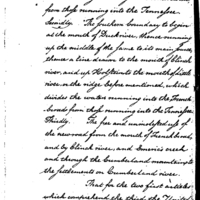 from those running into the Tennessee
Secondly. The southern boundary to begin
at the mouth of Duck river, thence running
up the middle of the same to its main source,
thence a line drawn to the mouth of Clinch
river, and up Holston to the mouth of Little
river on the ridge before mentioned, which
divides the waters running into the French
broad from those running into the Tennessee
Thirdly. The free and uninterrupted use of
the new road from the mouth of French broad,
and by Clinch river, and Emerie's creek
and through the Cumberland mountains to
the settlements on Cumberland river.
That for the two first articles
which comprehend the third the United